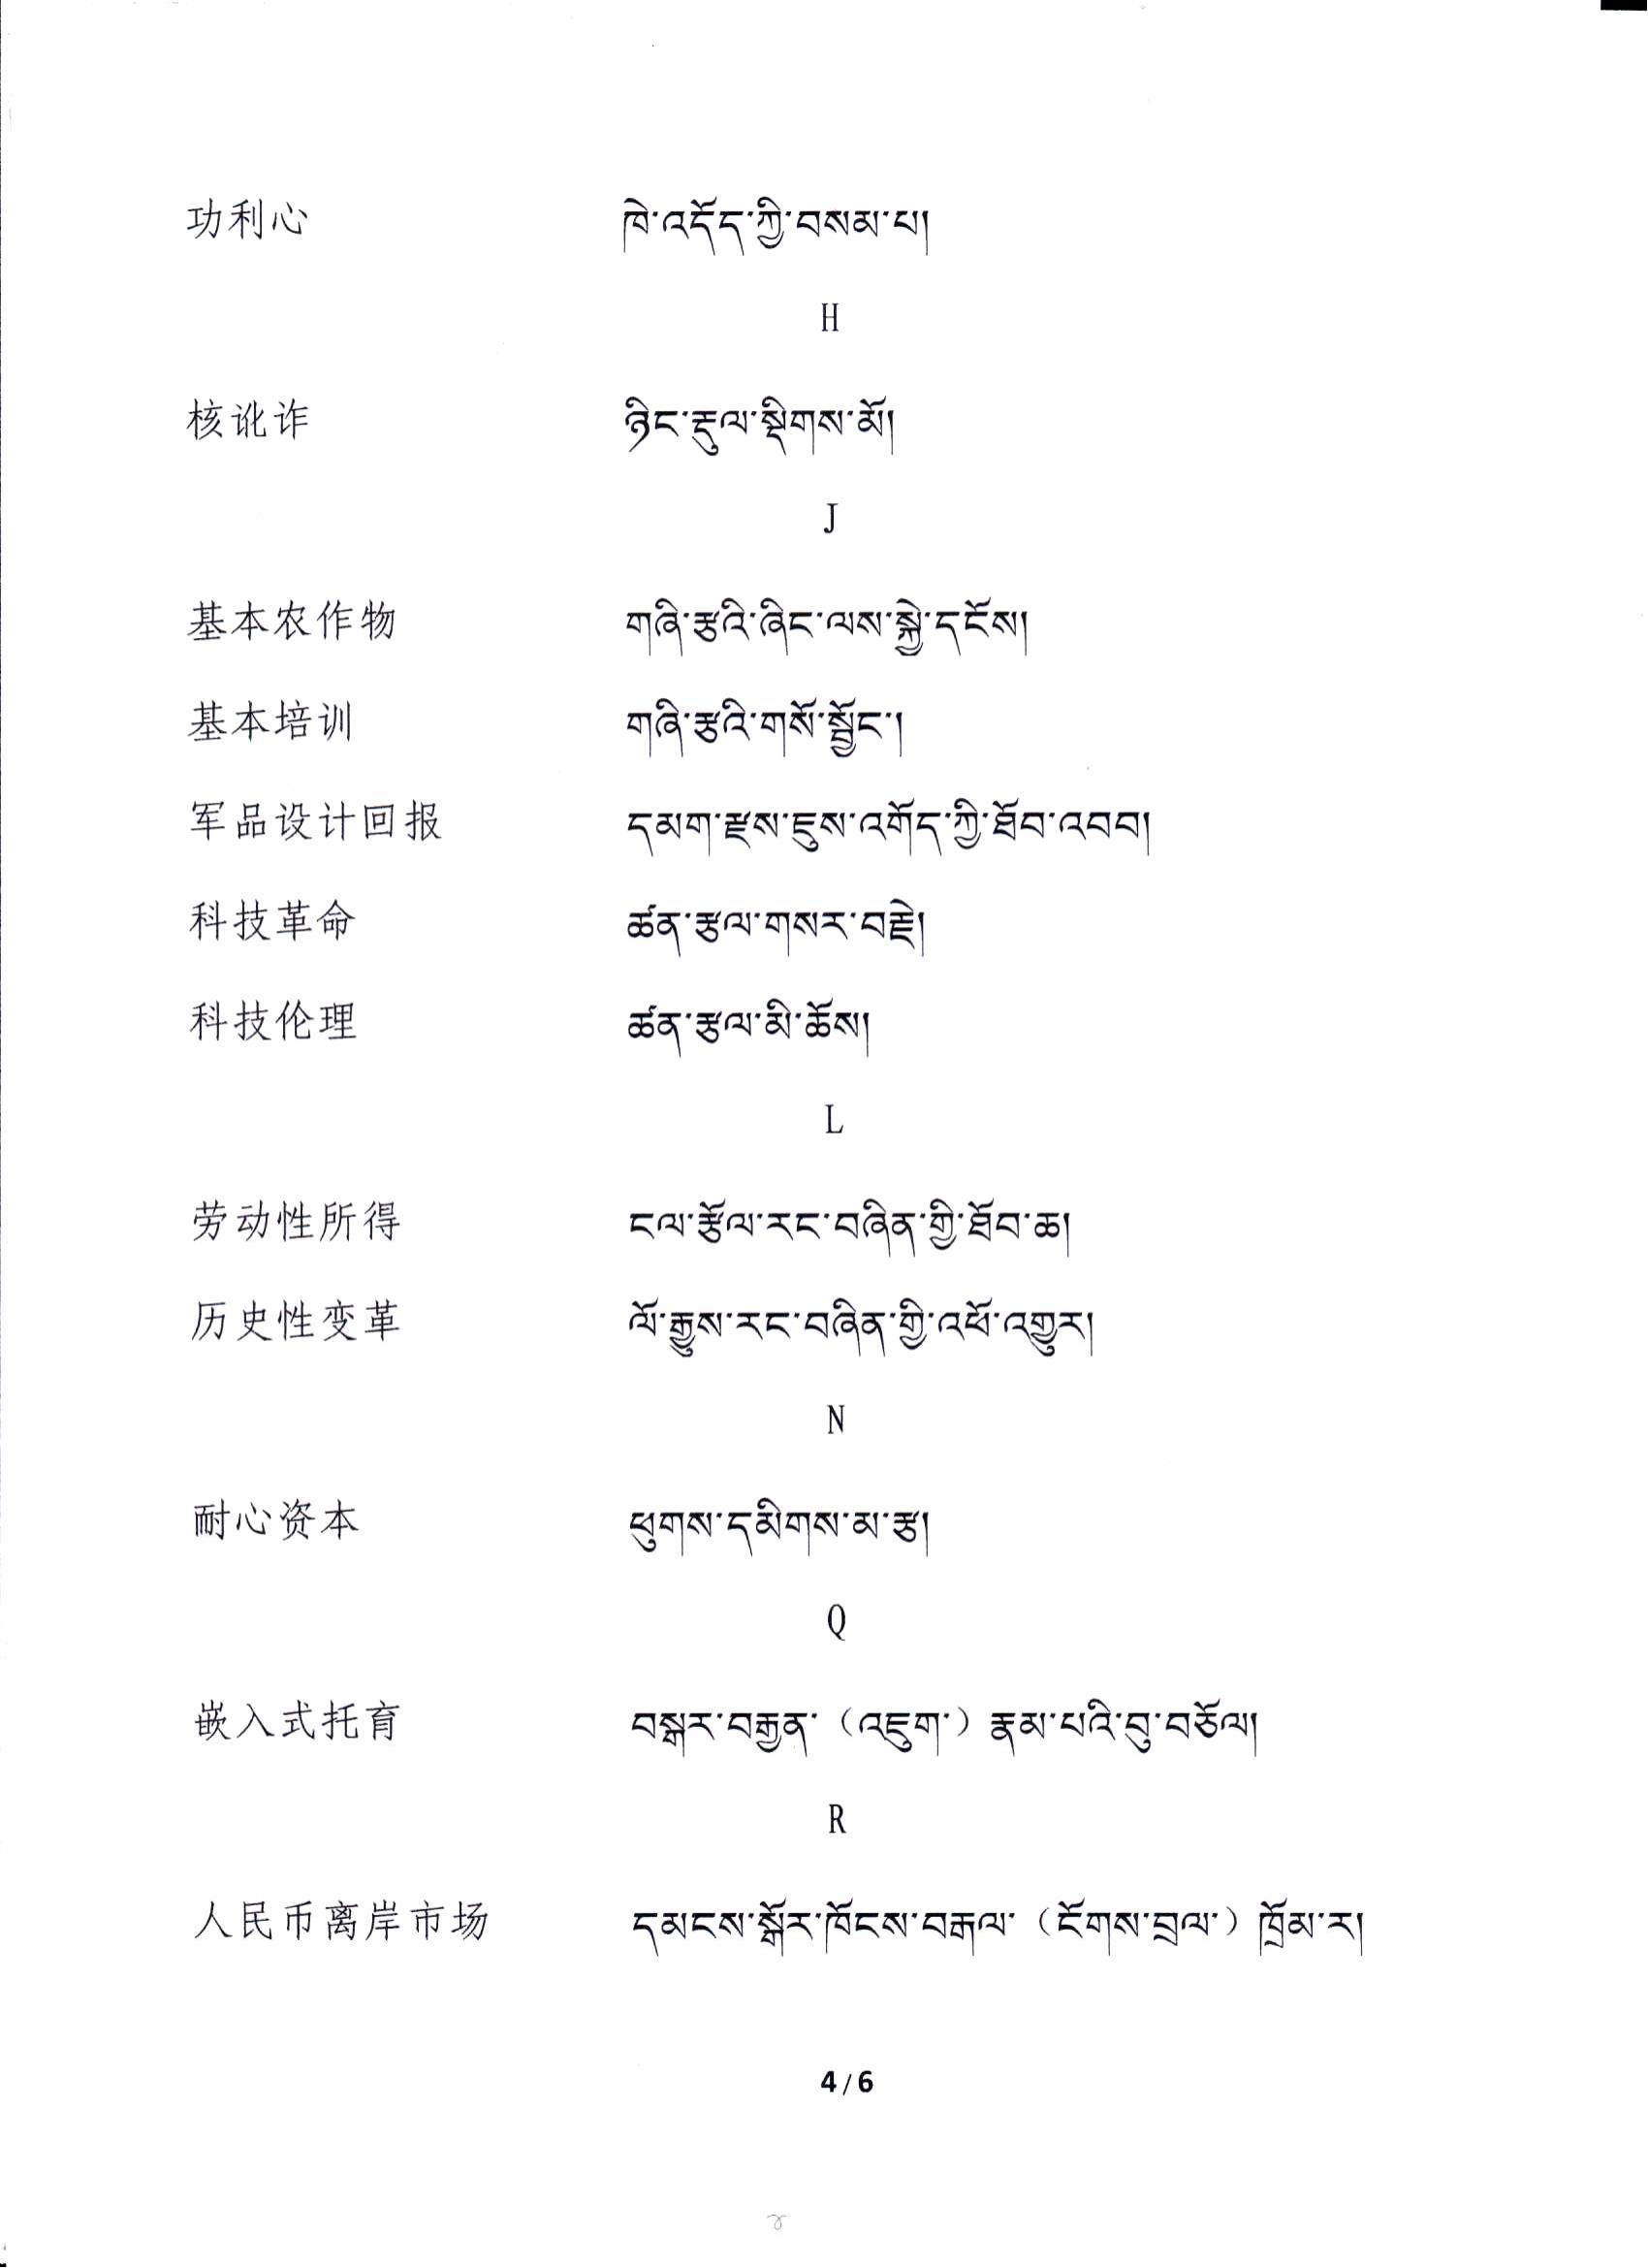 功利心 ཁེ་འདོད་ཀྱི་བསམ་པ།
H
核讹诈 ཉིང་རྡུལ་སྡིགས་མོ།
J
基本农作物 གཞི་རྩའི་ཞིང་ལས་སྐྱེ་དངོས།
基本培训 གཞི་རྩའི་གསོ་སྦྱོང་།
军品设计回报 དམག་རྫས་ཇུས་འགོད་ཀྱི་ཐོབ་འབབ།
科技革命 ཚན་རྩལ་གསར་བརྗེ།
科技伦理 ཚན་རྩལ་མི་ཆོས།
L
劳动性所得 ངལ་རྩོལ་རང་བཞིན་གྱི་ཐོབ་ཆ།
历史性变革 ལོ་རྒྱུས་རང་བཞིན་གྱི་འཕོ་འགྱུར།
N
耐心资本 ཕུགས་དམིགས་མ་རྩ།
Q
嵌入式托育 བསྒར་བརྒྱན་（འཇུག་）རྣམ་པའི་བུ་བཅོལ།
R
人民币离岸市场 དམངས་སྒོར་ཁོངས་བརྒལ་（ངོགས་བྲལ་）ཁྲོམ་ར།
4/6